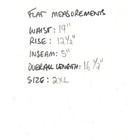 FLAT MEASUREMENTS
WAIST: 19"
RISE: 12½"
INSEAM: 5"
OVERALL LENGTH: 16½"
SIZE: 2XL